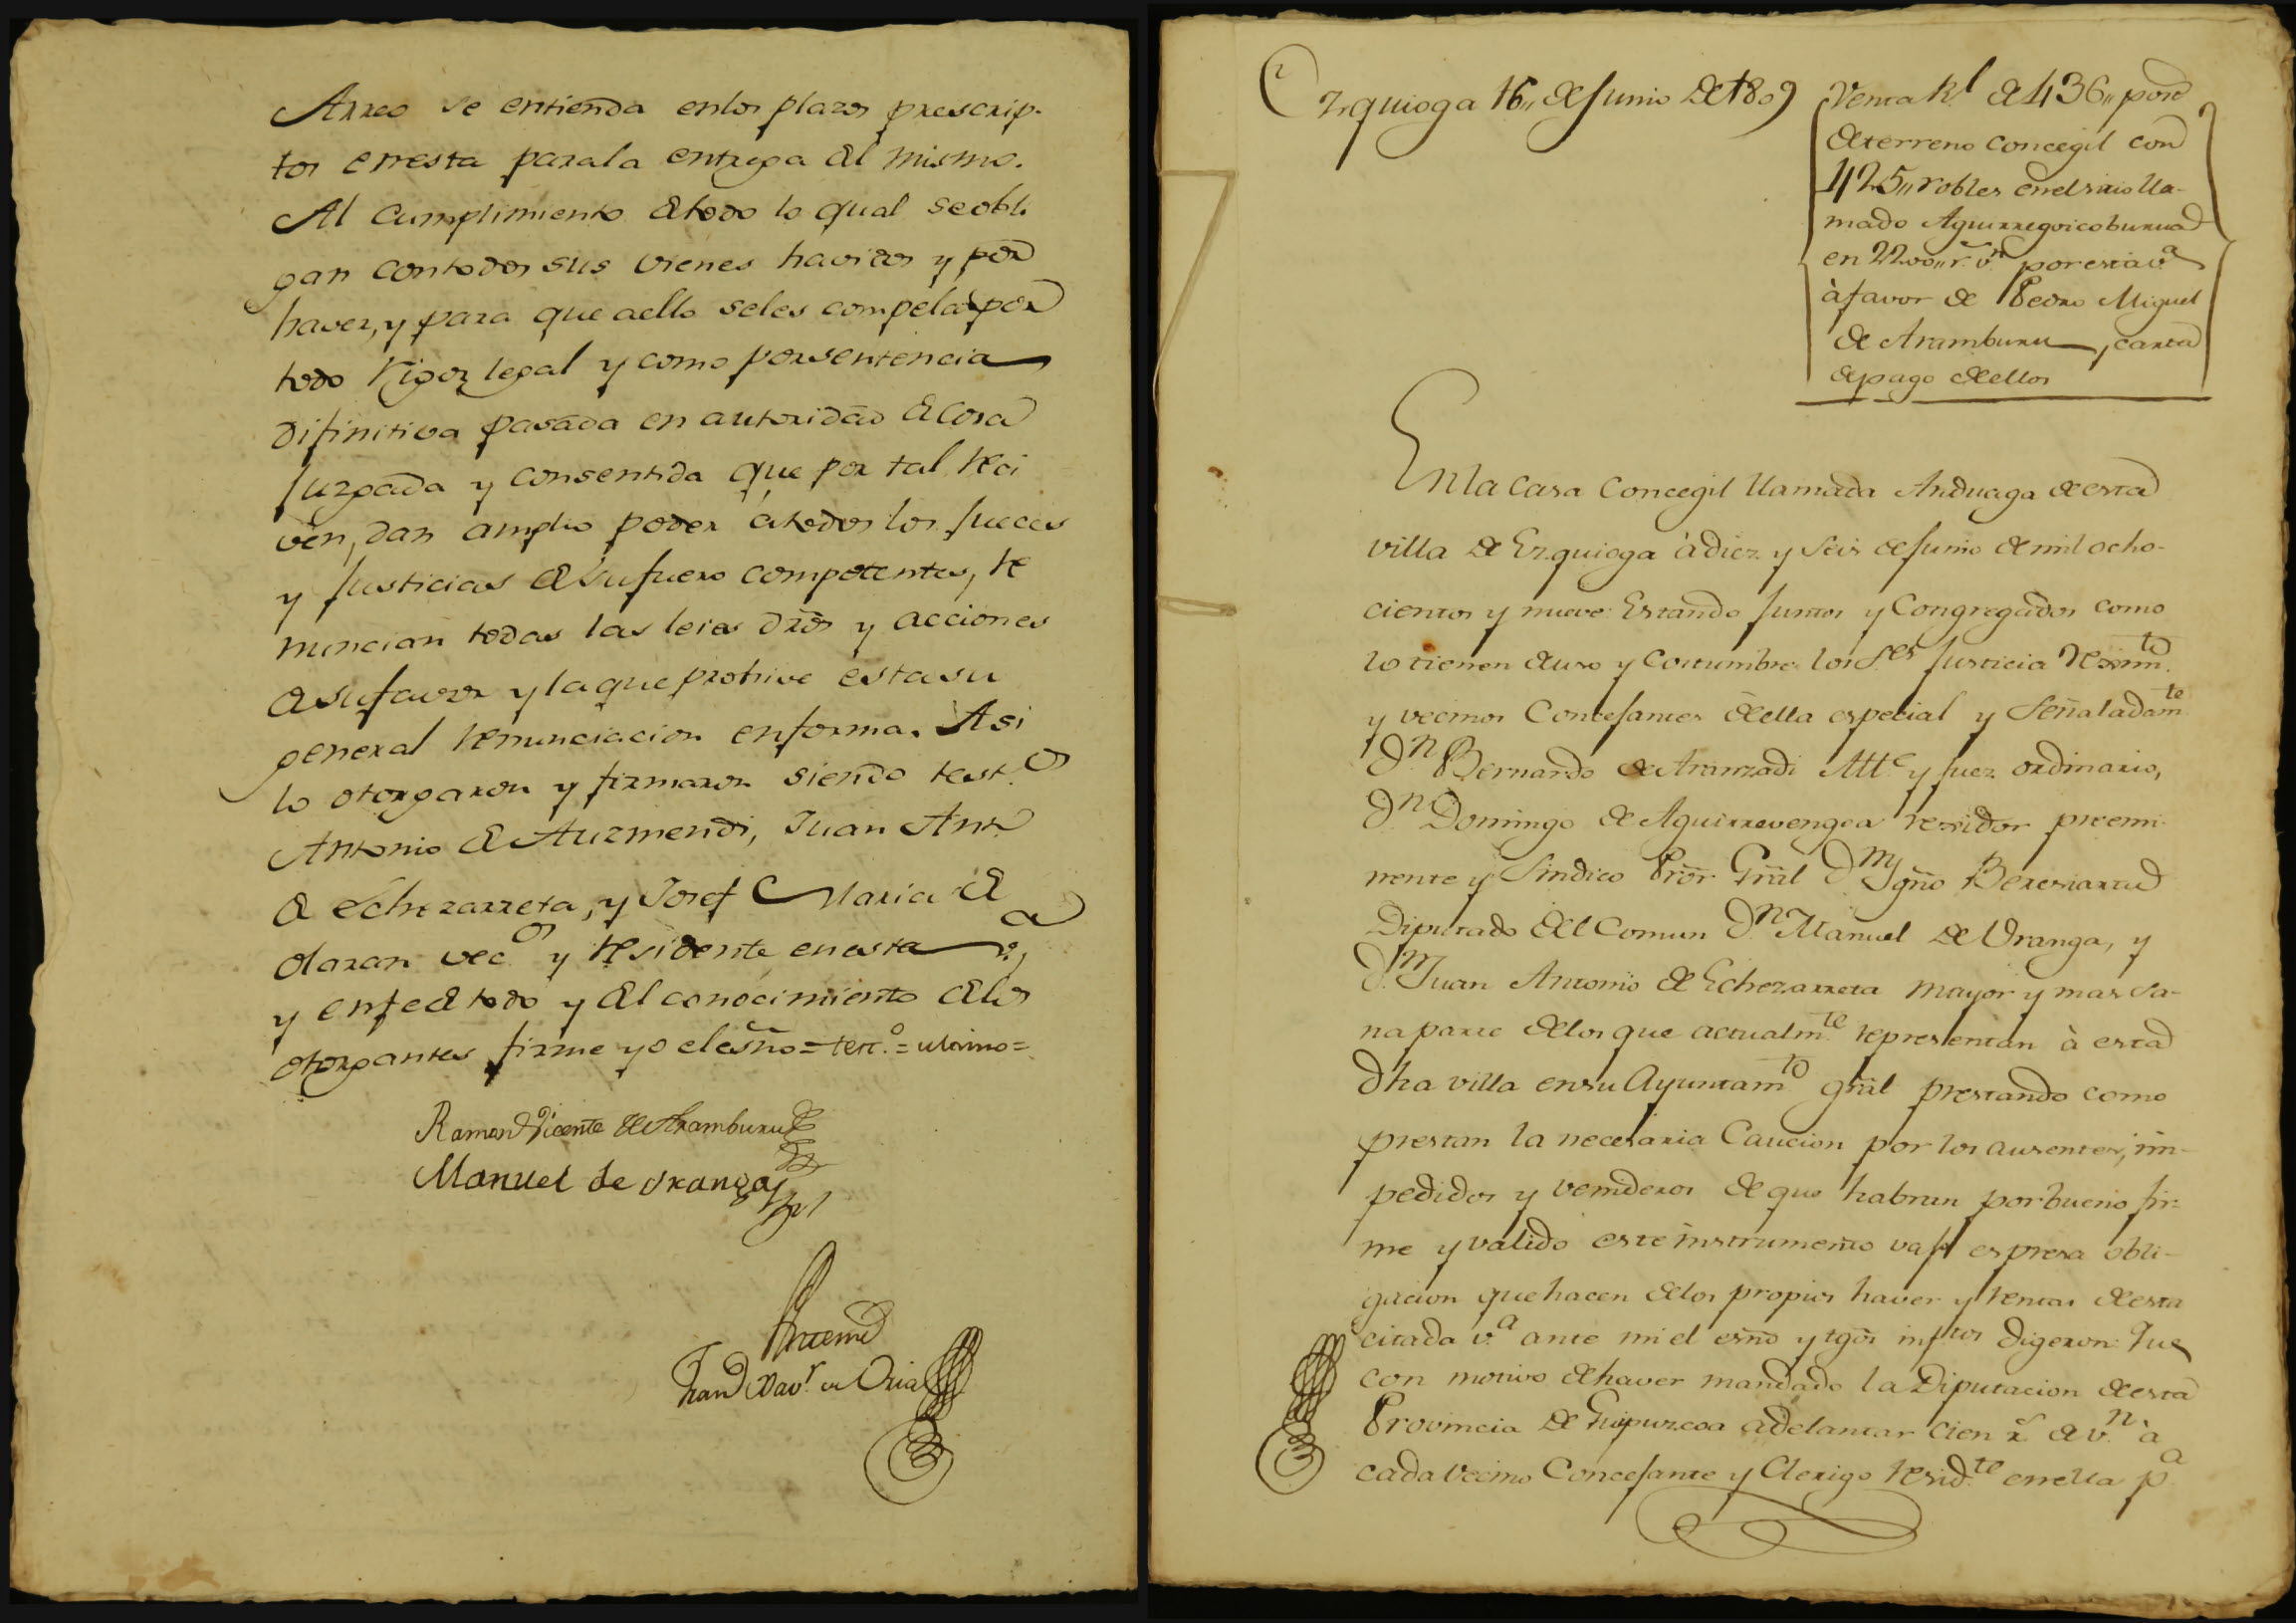 Arreo se entienda enlos plazos prescrip-
tos enesta parala entrega del mismo.
Al cumplimiento detodo lo qual seobli
gan contodos sus vienes havidos y por
haver, y para que aello seles compela por
todo rigor legal y como porsentencia
difinitiva pasada en autoridad de cosa
juzgada y consentida que por tal reci
ven, dan amplio poder átodos los Jueces
y Justicias desufuero competentes, re
nuncian todas las leies dros y acciones
desufavor y laque prohive estasu
general renunciacion enforma. Asi
lo otorgaron y firmaron siendo test.os
Antonio de Auzmendi, Juan Ant.
de Echezarreta, y Josef Maria de
Olaran vec.os y residente enesta v.a
y enfee detodo y del conocimiento delos
otorgantes firme yo elesño = terc.o = ultimo =
Ramon Vicente de Aramburu
Manuel de Uranga
Antemi
Fran Xav.r de Oria
Ezquioga 16,, de Junio de 1809
Venta Rl de 436,, pos
de terreno concegil con
425,, robles enelsitio lla-
mado Aguirregoicoburua
en 2200,, r.s v.n por esta v.a
à favor de Pedro Miguel
de Aramburu, carta
de pago de ellos
En la casa Concegil llamada Anduaga de esta
villa de Ezquioga à diez y seis de Junio de mil ocho-
cientos y nueve: Estando Juntos y Congregados como
lo tienen deuso y costumbre los S.es Justicia Regim.to
y vecinos Concejantes deella especial y Señaladam.te
D.n Bernardo de Aranzadi Alle y Juez ordinario,
D.n Domingo de Aguirrevengoa regidor preemi-
nente y Sindico Pror Gral D.n Ygño Bereciartu
Diputado del Comun D.n Manuel de Uranga, y
D.n Juan Antonio de Echezarreta mayor y mas sa-
na parte delos que actualm.te representan à esta
dha villa ensu Ayuntam.to gral prestando como
prestan la necesaria Caucion por los ausentes, im-
pedidos y venideros de que habran por bueno fir-
me y valido este instrumento vajo espresa obli-
gacion que hacen delos propios haver y rentas deesta
citada v.a ante mi el esño y tgos inftos digeron: Que
con motivo de haver mandado la Diputacion deesta
Provincia de Guipuzcoa adelantar cien r.s de v.n à
cada vecino Concejante y Clerigo resid.te enella p.a